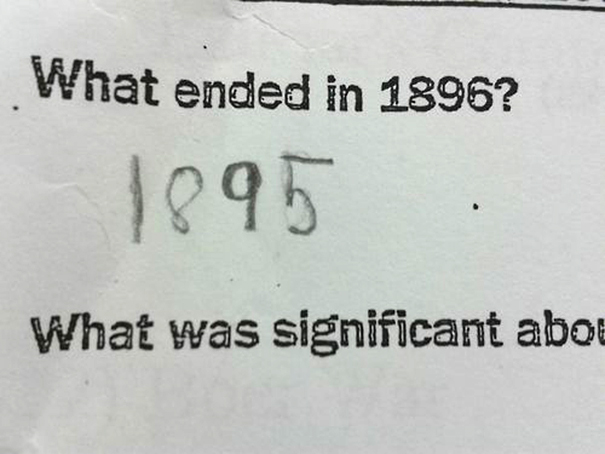 What ended in 1896?
1895
What was significant abou